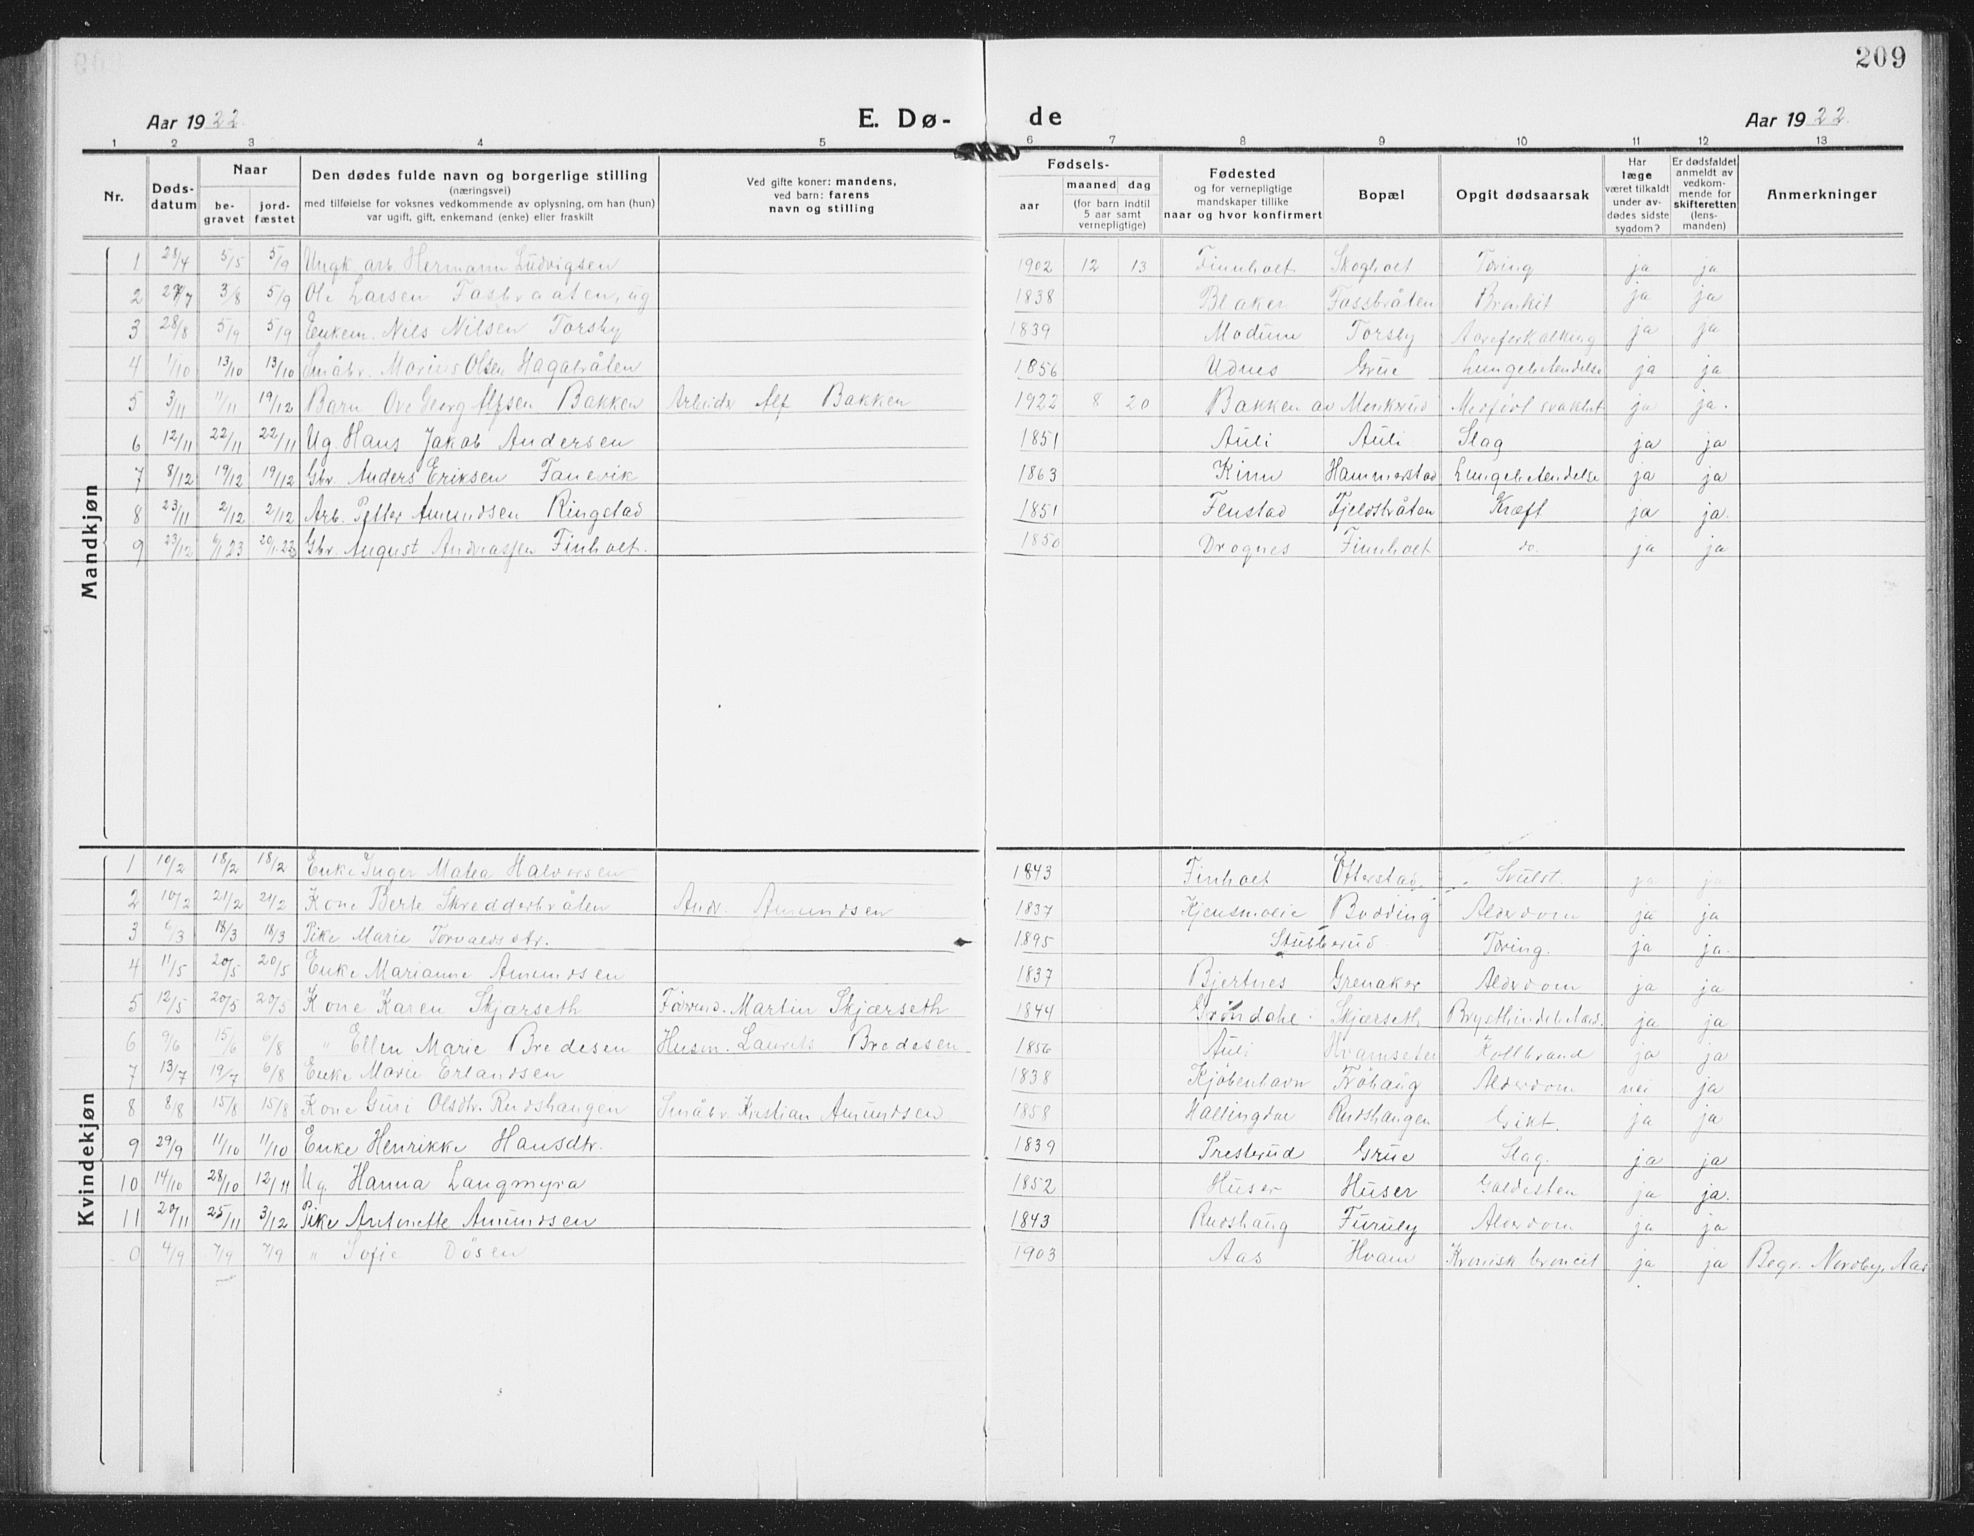 209
Aar 1922.
E. Dø-
de
Aar 1922.
1 2 3 4 5 6 7 8 9 10 11 12 13
Nr.
Døds-
datum
Naar
be-
gravet
jord-
fæstet
Den dødes fulde navn og borgerlige stilling
(næringsvei)
med tilføielse for voksnes vedkommende av oplysning, om han (hun)
var ugift, gift, enkemand (enke) eller fraskilt
Ved gifte koner: mandens,
ved barn: farens
navn og stilling
Fødsels-
aar
maaned dag
(for barn indtil
5 aar samt
vernepligtige)
Fødested
og for vernepligtige
mandskaper tillike
naar og hvor konfirmert
Bopæl
Opgit dødsaarsak
Har
læge
været tilkaldt
under av-
dødes sidste
sygdom?
Er dødsfaldet
anmeldt av
vedkom-
mende for
skifteretten
(lens-
manden)
Anmerkninger
Mandkjøn
1 28/4 5/5 5/9 Ungk. arb. Hermann Ludvigsen 1902 12 13 Finnholt Skogholt Tæring ja ja
2 27/7 3/8 5/9 Ole Larsen Fasbraaten, ug 1838 Blaker Fossbråten Bronkit ja ja
3 28/8 5/9 5/9 Enkem. Nils Nilsen Torsby 1839 Modum Torsby Aareforkalkning ja ja
4 1/10 13/10 13/10 Småbr. Marius Olsen Hagabråten 1856 Udnes Grue Lungebetendelse ja ja
5 3/11 11/11 19/12 Barn Ove Georg Alfsen Bakken Arbeider Alf Bakken 1922 8 20 Bakken av Menkerud Medfödt svakhet ja ja.
6 12/11 22/11 22/11 Ug. Hans Jakob Andersen 1851 Auli Auli Slag ja ja
7 8/12 19/12 19/12 Gbr. Anders Eriksen Fanevik 1863 Kinn Hammerstad Lungebetendelse ja ja
8 23/11 2/12 2/12 Arb. Petter Amundsen Ringstad 1851 Fenstad Fjeldbråten Kræft ja ja.
9 23/12 6/1 23 20/1.23 Gbr. August Andreassen Finholt. 1850 Drognes Finnholt do. ja ja
Kvindekjøn
1 10/2 18/2 18/2 Enke Inger Matea Halvorsen 1843 Finholt Otterstad Svulst. ja ja
2 10/2 21/2 21/2 Kone Berte Skredderbråten Andr. Amundsen 1837 Kjensmoeie Bodding Alderdom ja ja
3 6/3 18/3 18/3 Pike Marie Torvaldsdtr. 1895 Stubberud Tæring. ja ja.
4 11/5 20/5 20/5 Enke Marianne Amundsen 1837 Bjertnes Grenaker Alderdom ja ja
5 12/5 20/5 20/5 Kone Karen Skjærseth Martin Skjærseth 1844 Gröndahl Skjærseth ja ja
6 9/6 15/6 6/8 " Ellen Marie Bredesen Husm. Laurits Bredesen 1856 Auli Hvamseter Koldbrand ja ja
7 13/7 19/7 6/8 Enke Marie Erlandsen 1838 Kjöbenhavn Fröhaug Alderdom nei ja
8 8/8 15/8 15/8 Kone Guri Olsdtr. Rudshaugen Småbr. Kristian Amundsen 1858 Hallingdal Rudshaugen Gikt. ja ja
9 29/9 11/10 11/10 Enke Henrikke Hansdtr. 1839 Presterud Grue Slag. ja ja
10 14/10 28/10 12/11 Ug. Hanna Langmyra 1852 Huser Huser Galdesten ja ja.
11 20/11 25/11 3/12 Pike Antonette Amundsen 1843 Rudshaug Furuly Alderdom ja ja
0 4/9 7/9 7/9 " Sofie Dösen 1903 Aas Hvam Kronisk broncit ja ja Begr. Nordby, Aas